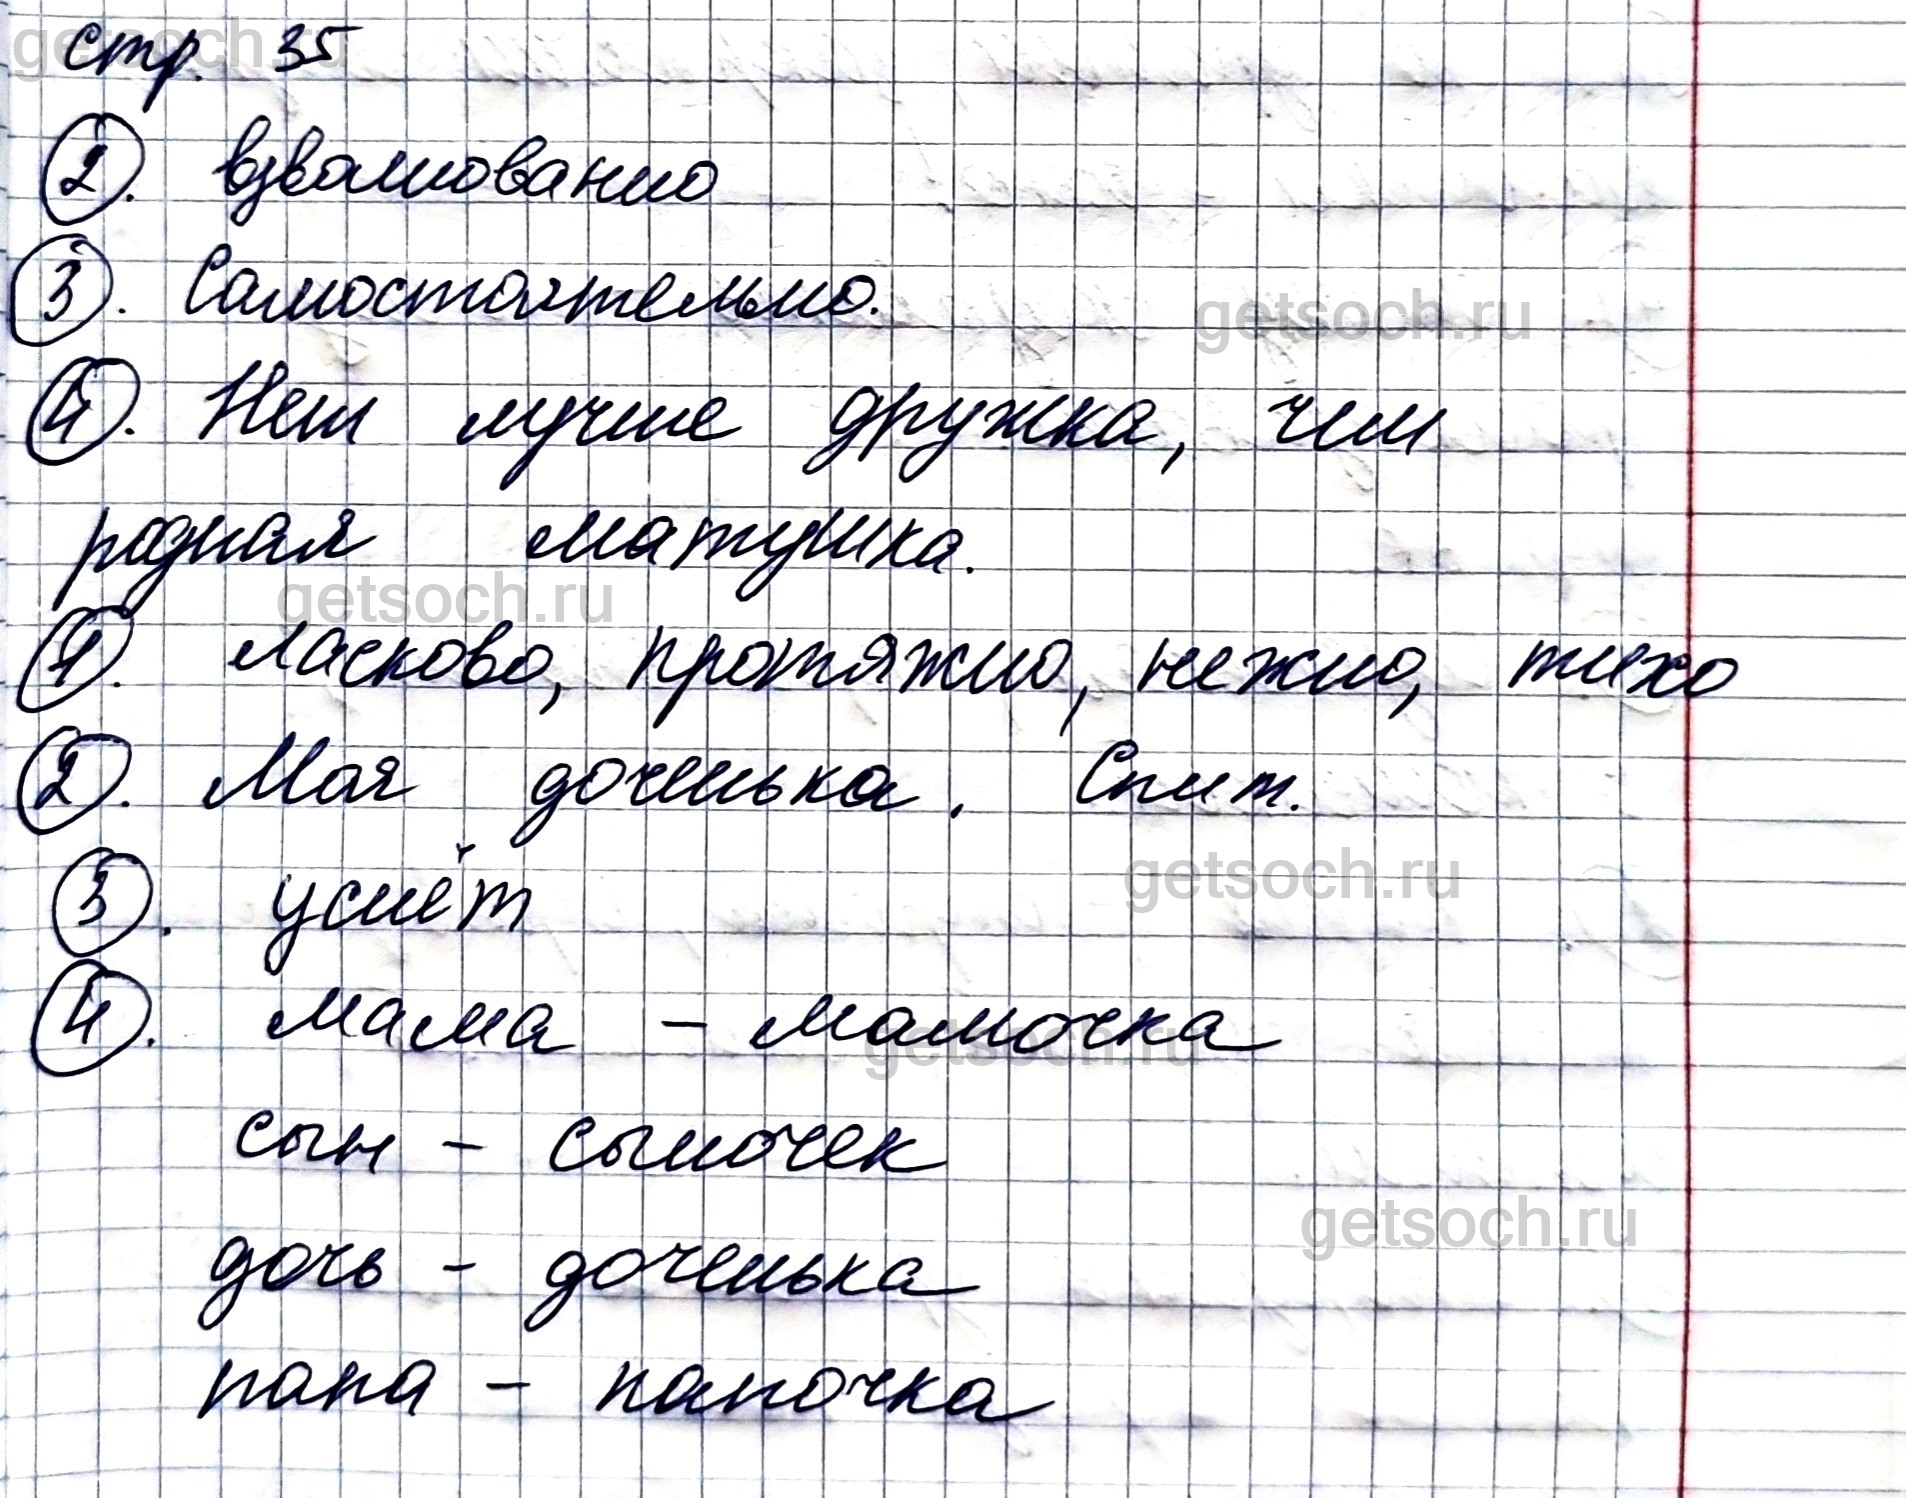 стр. 35
2. взволнованно
3. Самостоятельно.
4. Нет лучше дружка, чем
родная матушка.
1. ласково, протяжно, нежно, тихо
2. Моя доченька. Спит.
3. уснёт
4. мама - мамочка
сын - сыночек
дочь - доченька
папа - папочка
getsoch.ru
getsoch.ru
getsoch.ru
getsoch.ru
getsoch.ru
getsoch.ru